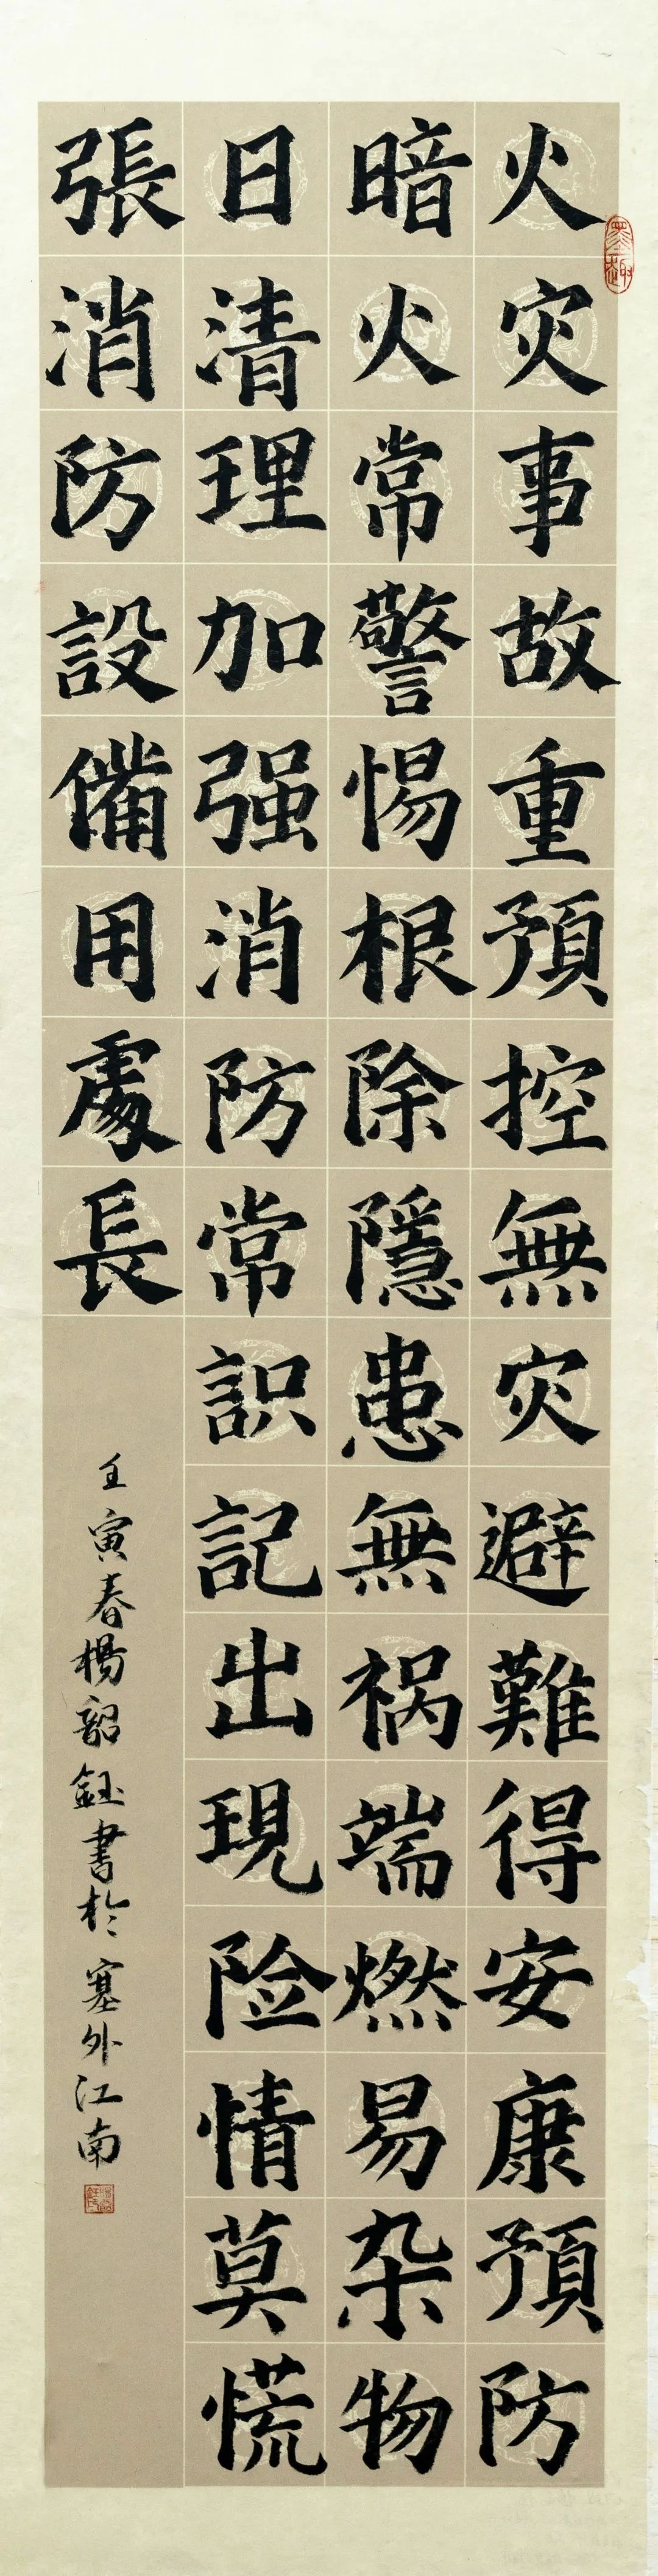 火灾事故重預控無灾避難得安康預防
暗火常警惕根除隱患無祸端燃易杂物
日清理加强消防常識記出現险情莫慌
張消防設備用處長
壬寅春楊韶鈺書於塞外江南